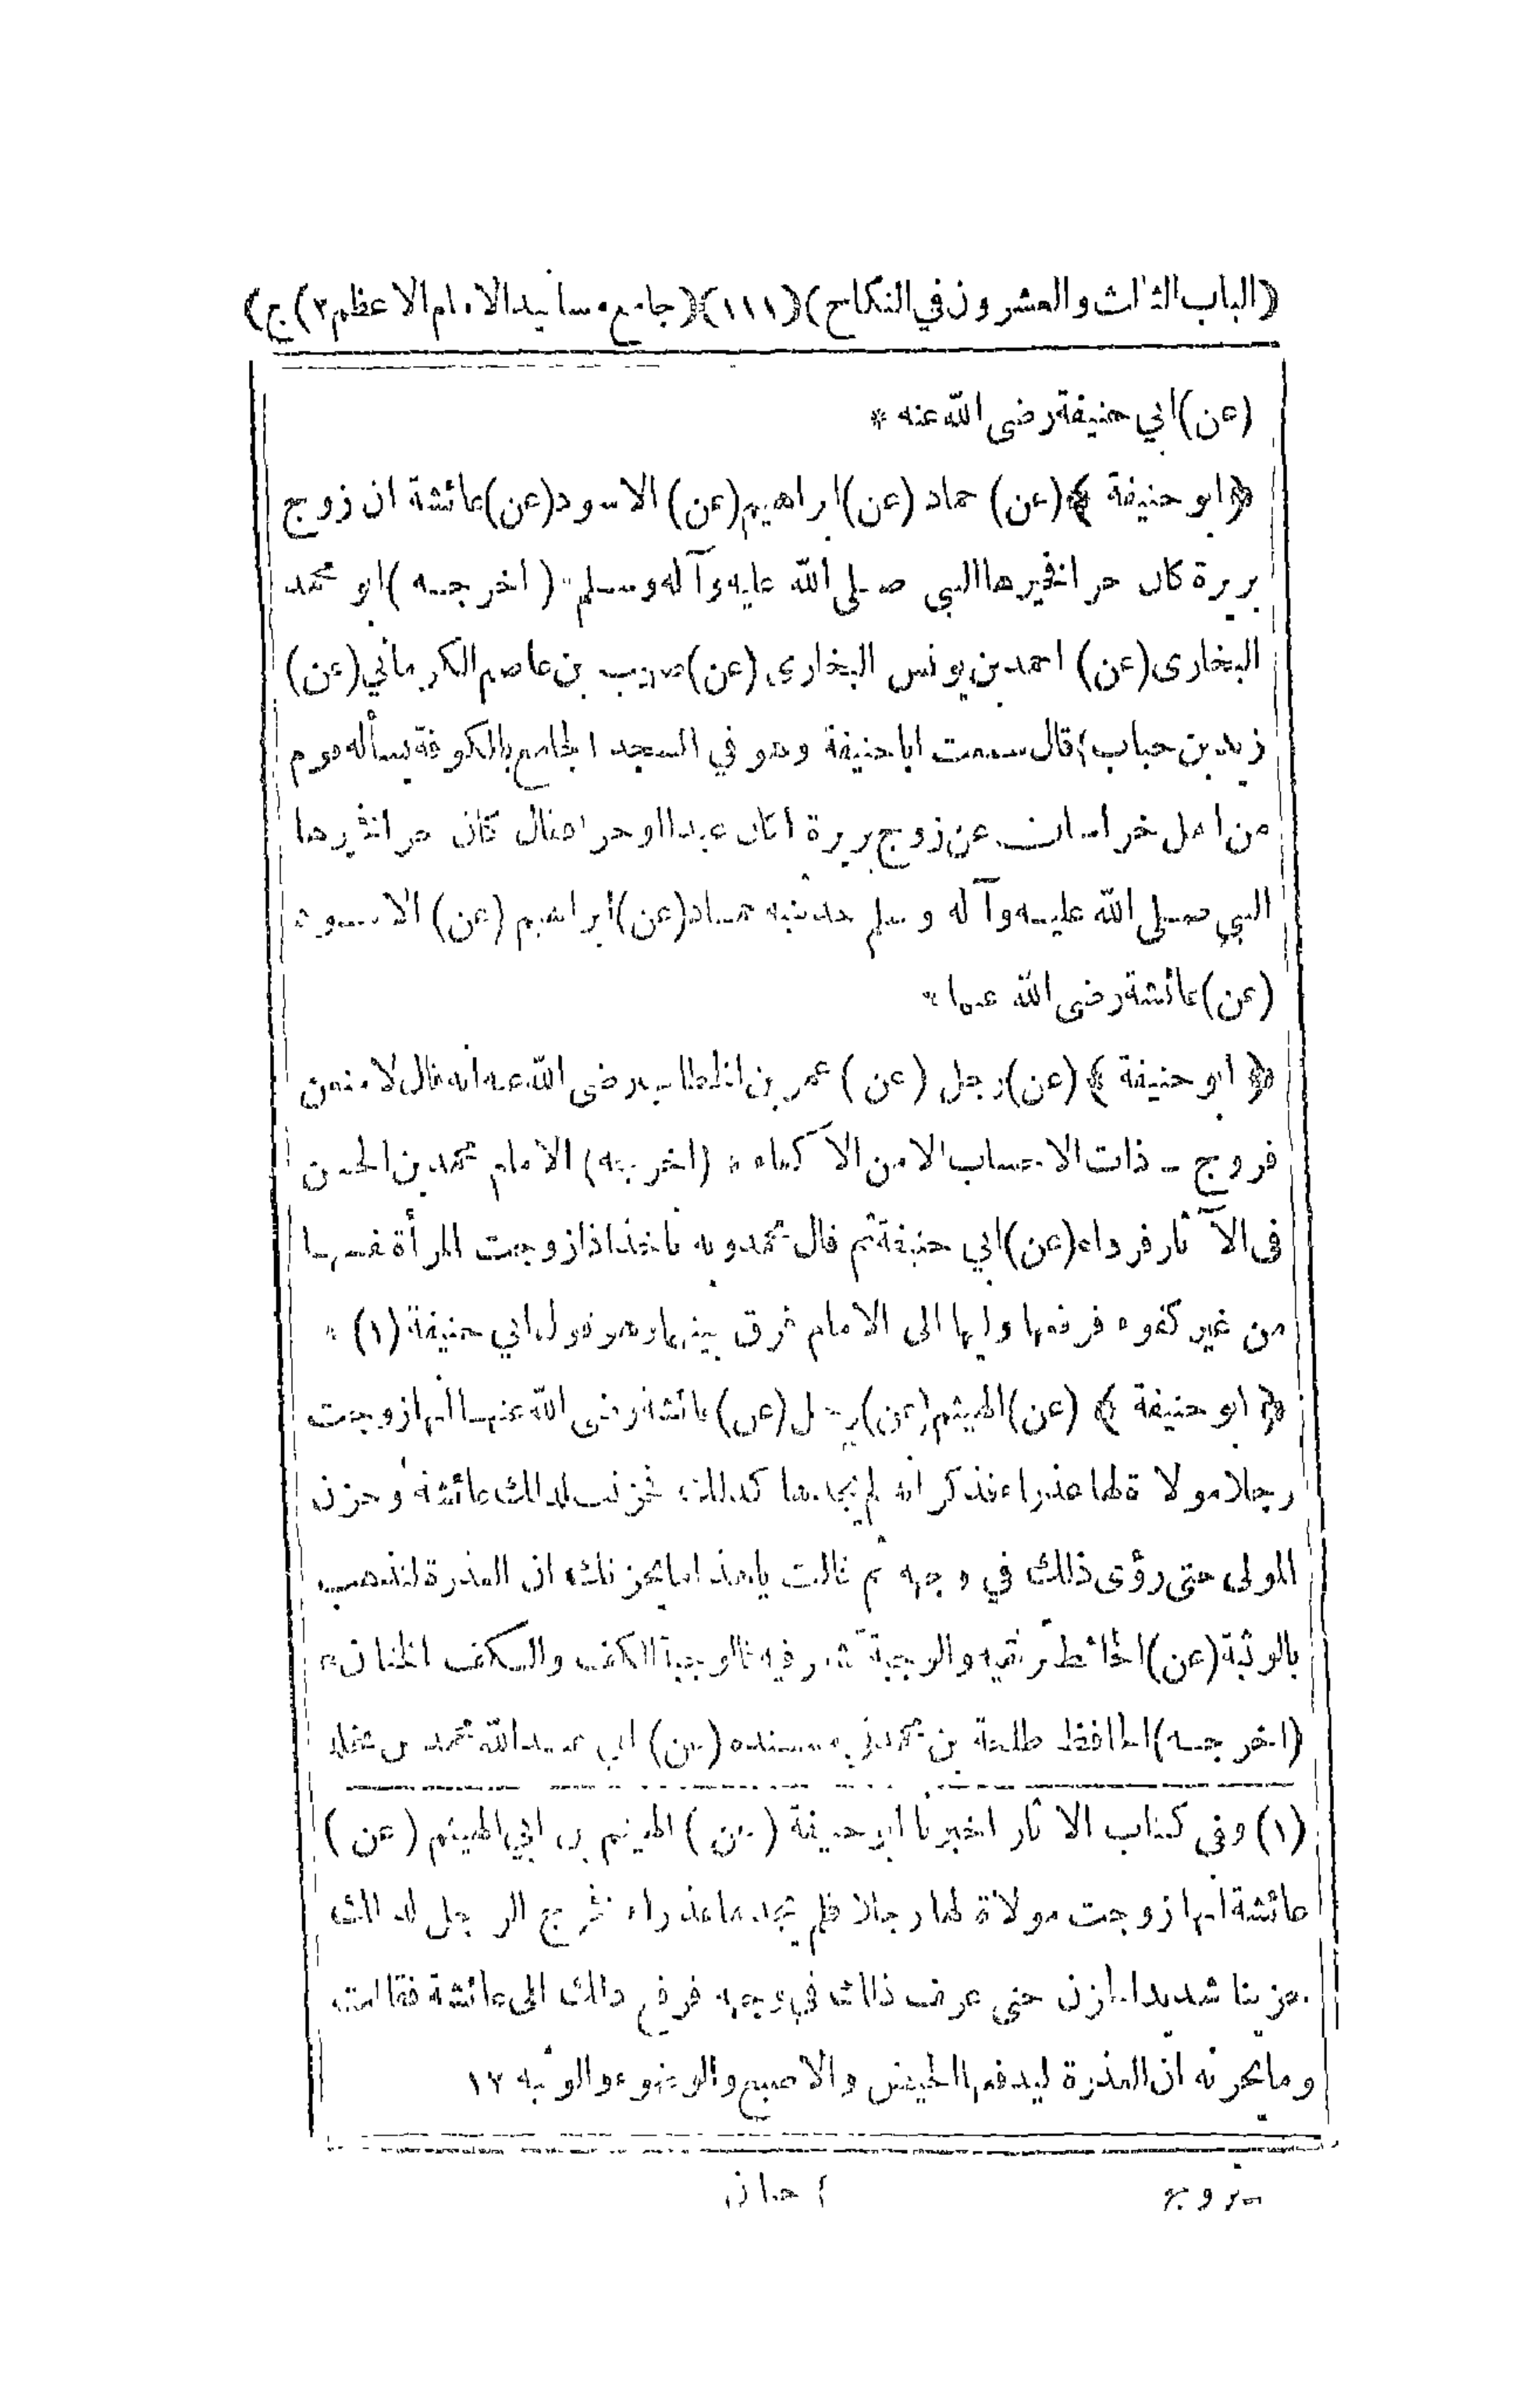 (الباب الثالث والعشرون في النكاح) (١١١) (جامع مسانيد الامام الاعظم ٢) ج)
(عن) ابي حنيفة رضى الله عنه *
﴿ابو حنيفة﴾ (عن) حماد (عن) ابراهيم (عن) الاسود (عن) عائشة ان زوج
بريرة كان حرا فخيرها النبي صلى الله عليه وآله وسلم * (اخرجه) ابو محمد
البخارى (عن) احمد بن يونس البخارى (عن) بن عاصم الكرماني (عن)
زيد بن حباب قال سمعت ابا حنيفة وهو في المسجد الجامع بالكوفة يسأله قوم
من اهل خراسان عن زوج بريرة اكان عبدا او حرا فقال كان حرا فخيرها
النبي صلى الله عليه وآله وسلم حدثنيه حماد (عن) ابراهيم (عن) الاسود
(عن) عائشة رضى الله عنها *
﴿ابو حنيفة﴾ (عن) رجل (عن) عمر بن الخطاب رضى الله عنه انه قال لامنعن
فروج ذات الاحساب الا من الاكفاء * (اخرجه) الامام محمد بن الحسن
فى الآثار فرواه (عن) ابي حنيفة ثم قال محمد وبه ناخذ اذا زوجت المرأة نفسها
من غير كفوء فرفعها وليها الى الامام فرق بينهما وهو قول ابي حنيفة (١) *
﴿ابو حنيفة﴾ (عن) الهيثم (عن) رجل (عن) عائشة رضى الله عنها انها زوجت
رجلا مولاة لها عذراء فذكر انه لم يجدها كذلك فحزنت لذلك عائشة وحزن
المولى حتى رؤى ذلك في وجهه ثم قالت يا هذا ما يحزنك ان العذرة لتذهب
بالوثبة (عن) الحائط والوجبة فالوجبة الكف والكف
(اخرجه) الحافظ طلحة بن محمد في مسنده (عن) ابي عبد الله محمد بن مخلد
(١) وفى كتاب الاثار اخبرنا ابو حنيفة (عن) الهيثم بن ابي الهيثم (عن)
عائشة انها زوجت مولاة لها رجلا فلم يجدها عذراء فخرج الرجل لذلك
حزينا شديد الحزن حتى عرف ذلك في وجهه فرفع ذلك الى عائشة فقالت
وما يحزنه ان العذرة ليدفعها الحيض والاصبع والوضوء والوثبه ١٢